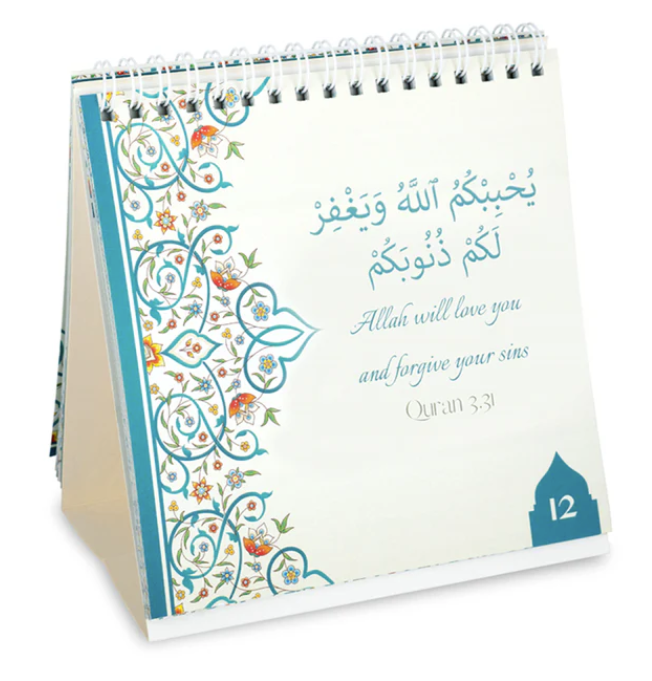 يُحْبِبْكُمُ ٱللَّهُ وَيَغْفِرْ
لَكُمْ ذُنُوبَكُمْ
Allah will love you
and forgive your sins
Quran 3:31
12